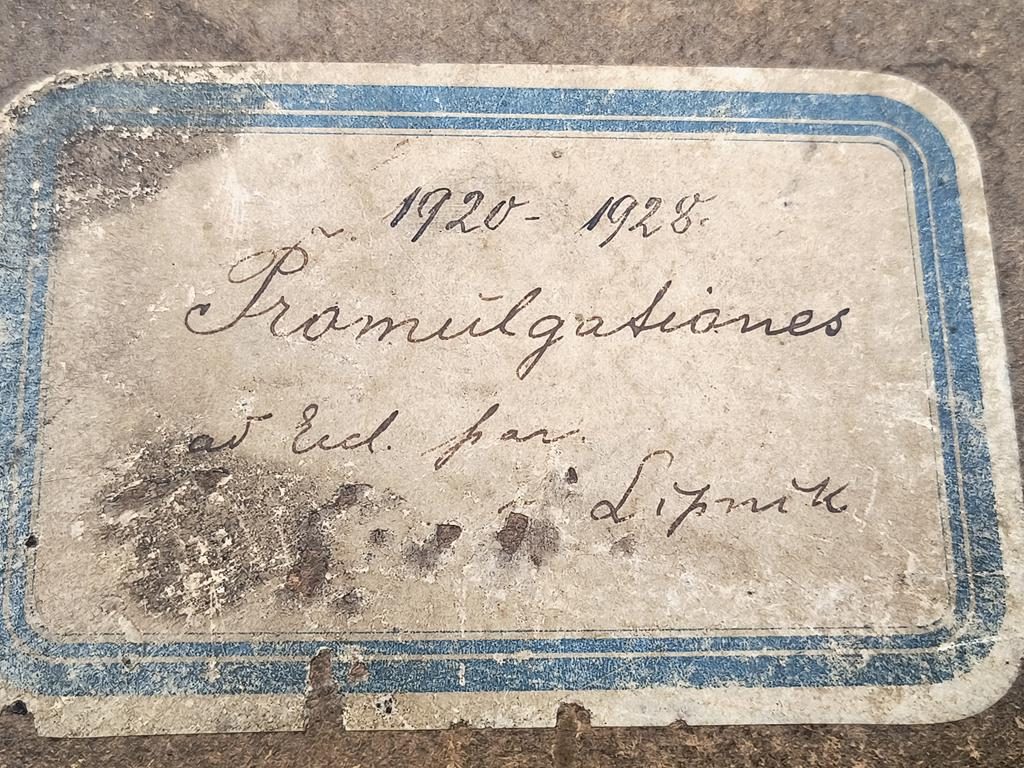 1920 - 1928.
Promulgationes
ad Eccl. par.
Lipnik